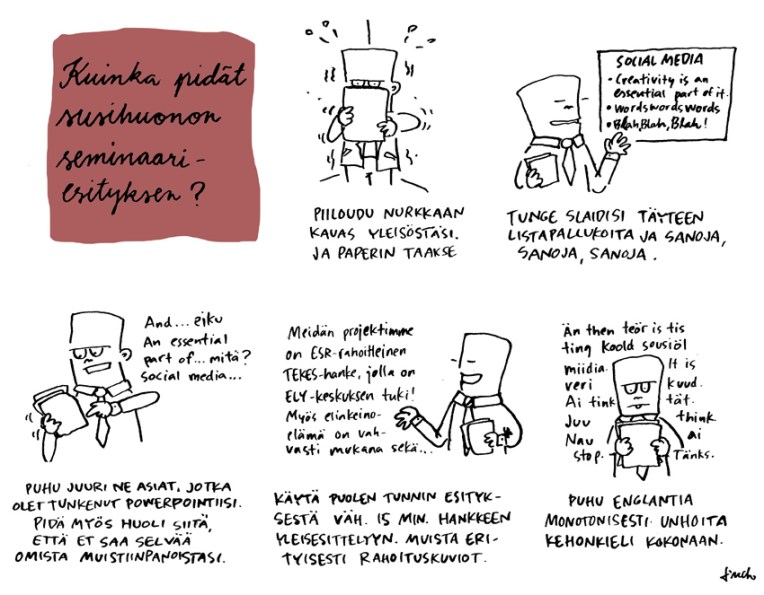 Kuinka pidät
susihuonon
seminaari-
esityksen?
PIILOUDU NURKKAAN
KAUAS YLEISÖSTÄSI.
JA PAPERIN TAAKSE
SOCIAL MEDIA
• Creativity is an
essential part of it.
• wordswordswords
• Blah, Blah, Blah!
TUNGE SLAIDISI TÄYTEEN
LISTAPALLUKOITA JA SANOJA,
SANOJA, SANOJA.
And... eiku
An essential
part of... mitä?
Social media...
PUHU JUURI NE ASIAT, JOTKA
OLET TUNKENUT POWERPOINTIISI.
PIDÄ MYÖS HUOLI SIITÄ,
ETTÄ ET SAA SELVÄÄ
OMISTA MUISTIINPANOISTASI.
Meidän projektimme
on ESR-rahoitteinen
TEKES-hanke, jolla on
ELY-keskuksen tuki!
Myös elinkeino-
elämä on vah-
vasti mukana sekä...
KÄYTÄ PUOLEN TUNNIN ESITYK-
SESTÄ VÄH. 15 MIN. HANKKEEN
YLEISESITTELYYN. MUISTA ERI-
TYISESTI RAHOITUSKUVIOT.
Än then teör is tis
ting koold sousiöl
miidia. It is
veri kuud.
Ai tink tät.
Juu think
Nau ai
stop. Tänks.
PUHU ENGLANTIA
MONOTONISESTI. UNHOITA
KEHONKIELI KOKONAAN.